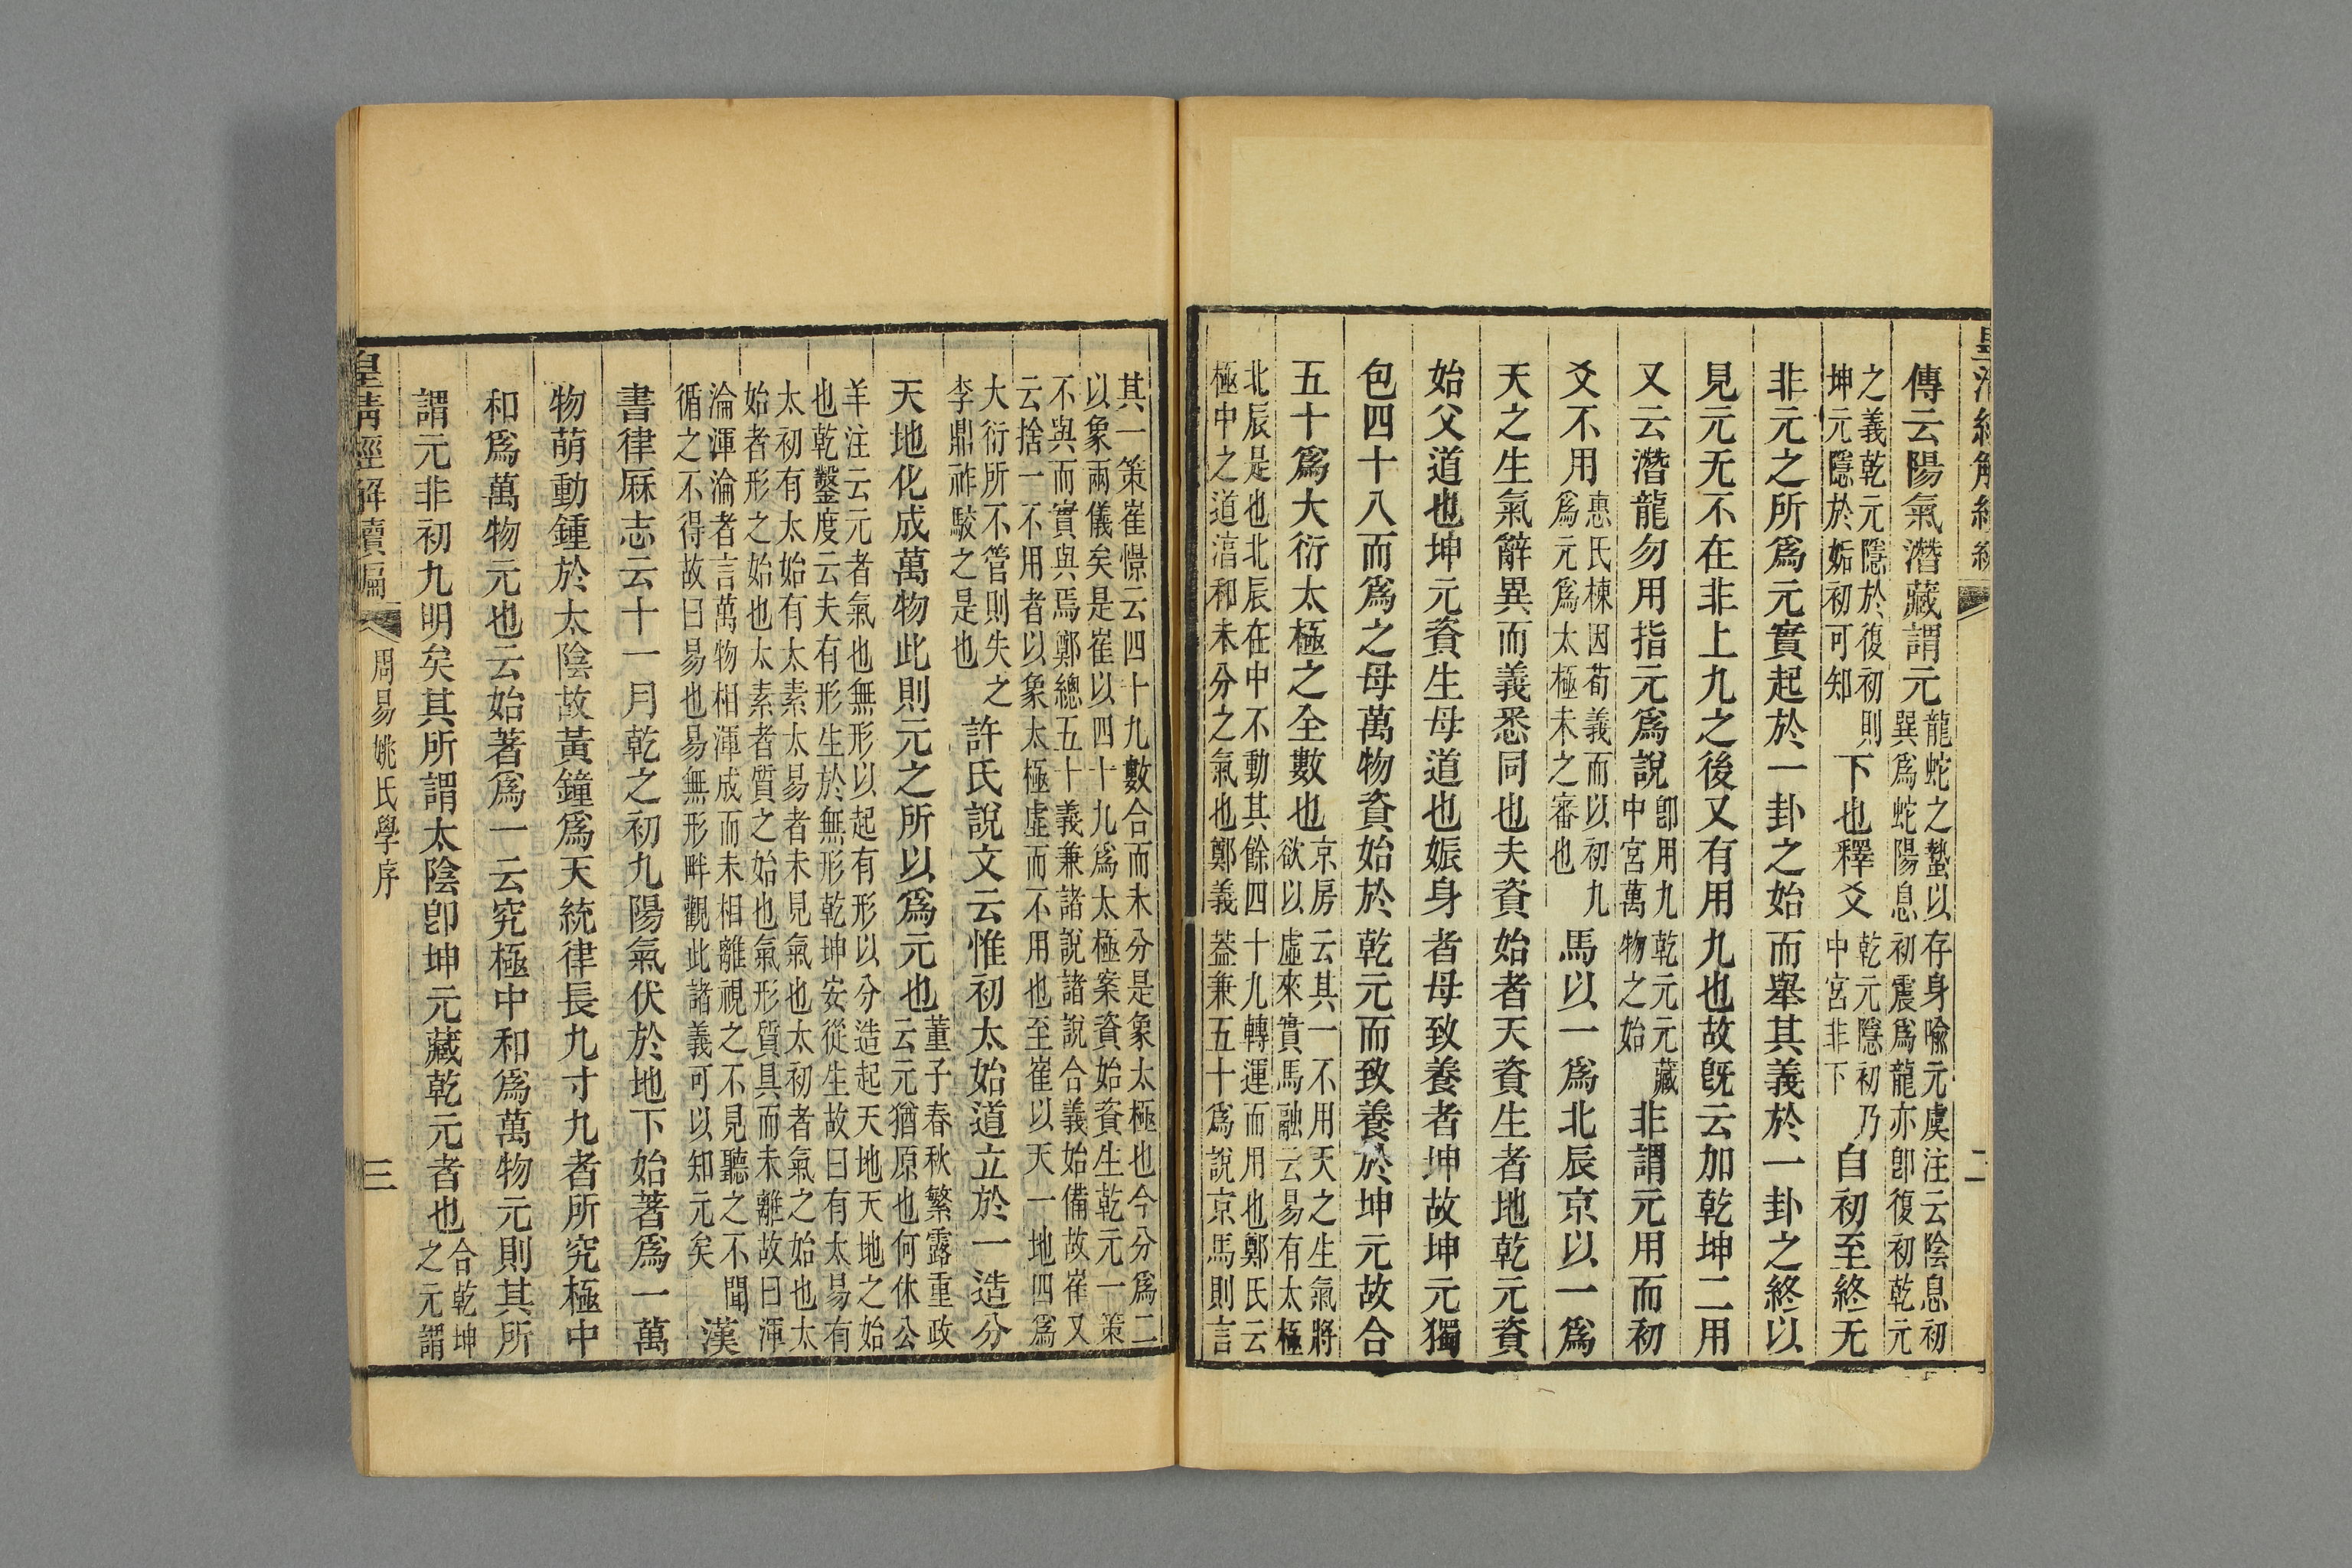 傳云陽氣潛藏謂元
龍蛇之蟄以存身喻元虞注云陰息初
巽爲蛇陽息初震爲龍亦卽復初乾元
之義乾元隱於復初則
坤元隱於姤初可知
下也釋爻
乾元隱初乃
中宮非下
自初至終无
非元之所爲元實起於一卦之始而舉其義於一卦之終以
見元无不在非上九之後又有用九也故旣云加乾坤二用
又云潛龍勿用指元爲說
卽用九乾元元藏
中宮萬物之始
非謂元用而初
爻不用
惠氏棟因荀義而以初九
爲元爲太極未之審也
馬以一爲北辰京以一爲
天之生氣辭異而義悉同也夫資始者天資生者地乾元資
始父道也坤元資生母道也娠身者母致養者坤故坤元獨
包四十八而爲之母萬物資始於乾元而致養於坤元故合
五十爲大衍太極之全數也
京房云其一不用天之生氣將
欲以虛來實馬融云易有太極
北辰是也北辰在中不動其餘四十九轉運而用也鄭氏云
極中之道湻和未分之氣也鄭義蓋兼五十爲說京馬則言
其一策崔憬云四十九數合而未分是象太極也今分爲二
以象兩儀矣是崔以四十九爲太極案資始資生乾元一策
不與而實與焉鄭總五十義兼諸說諸說合義始備故崔又
云捨一不用者以象太極虛而不用也至崔以天一地四爲
大衍所不管則失之
李鼎祚駮之是也
許氏說文云惟初太始道立於一造分
天地化成萬物此則元之所以爲元也
董子春秋繁露重政
云元猶原也何休公
羊注云元者氣也無形以起有形以分造起天地天地之始
也乾鑿度云夫有形生於無形乾坤安從生故曰有太易有
太初有太始有太素太易者未見氣也太初者氣之始也太
始者形之始也太素者質之始也氣形質具而未離故曰渾
淪渾淪者言萬物相渾成而未相離視之不見聽之不聞
循之不得故曰易也易無形畔觀此諸義可以知元矣
漢
書律厤志云十一月乾之初九陽氣伏於地下始著爲一萬
物萌動鍾於太陰故黃鐘爲天統律長九寸九者所究極中
和爲萬物元也云始著爲一云究極中和爲萬物元則其所
謂元非初九明矣其所謂太陰卽坤元藏乾元者也
合乾坤
之元謂
皇清經解續編
周易姚氏學序
三